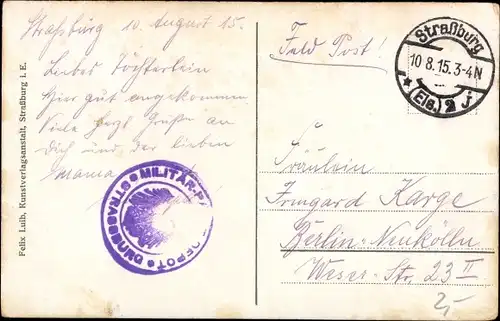 Straßburg 10. August 15.
Liebes Töchterlein
Hier gut angekommen
Viele herzl Grüße an
Dich und der lieben
Mama
Feld Post!
Straßburg
10 8.15.3-4N
* (Els.) 2 j
Fräulein
Irmgard Karge
Berlin-Neukölln
Weser-Str. 23 II
2,-
MILITÄR-P
DEPOT * STRASSBURG *
Felix Luib, Kunstverlagsanstalt, Straßburg i. E.